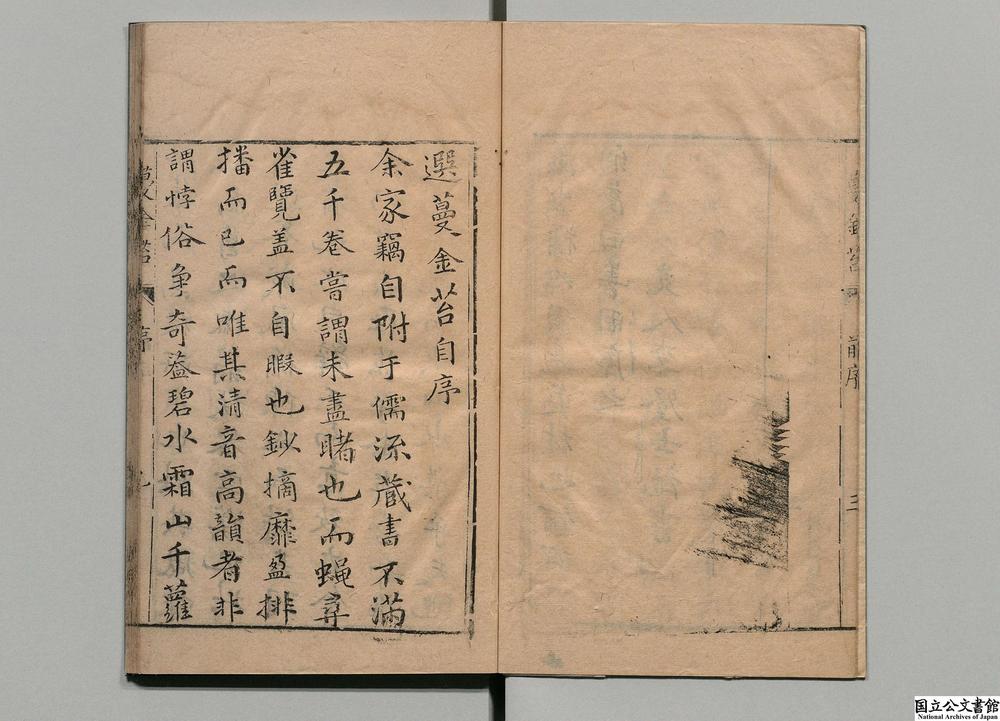 前序
三
選蔓金苔自序
余家竊自附于儒流藏書不滿
五千卷嘗謂未盡睹也而蝇尋
雀覽盖不自暇也鈔摘靡盈排
播而已而唯其清音高韻者非
謂悖俗争奇葢碧水霜山千蘿
序
国立公文書館
National Archives of Japan